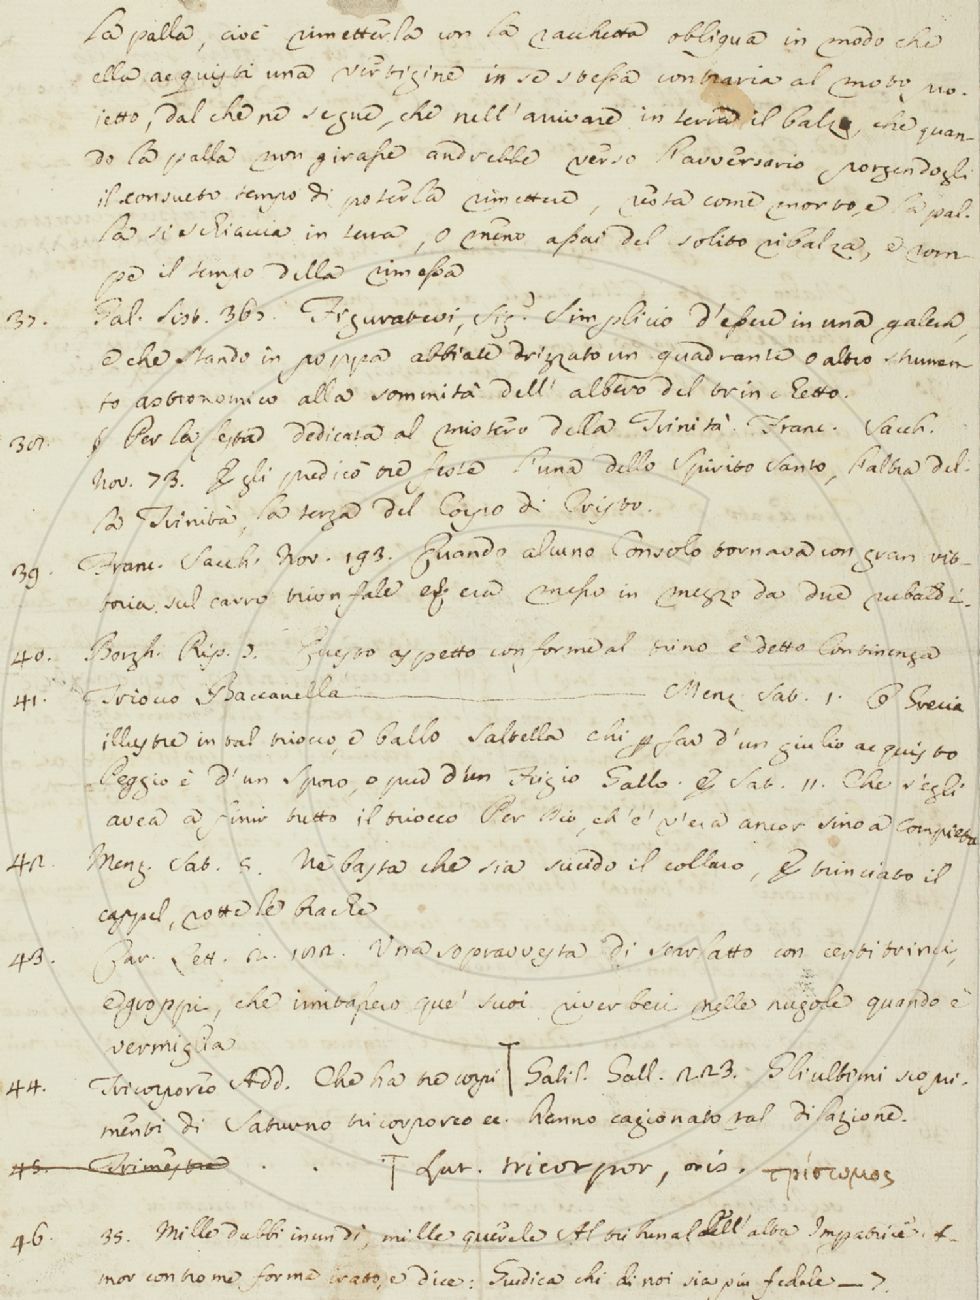 la palla, cioè rimetterla con la racchetta obliqua in modo che
ella acquisti una vertigine in se stessa contraria al moto pro.
ietto, dal che ne segue, che nell'arrivare in terra il balzo, che quan-
do la palla non girasse andrebbe verso l'avversario porgendogli
il consueto tempo di poterla rimettere, resta come morto, e la pal.
la si schiaccia in terra, o meno assai del solito ribalza, e rom-
pe il tempo della rimessa
37. Gal. Sist. 367. Figuratevi, Sig.r Simplicio d'essere in una galera,
e che stando in poppa abbiate drizzato un quadrante o altro strumen-
to astronomico alla sommità dell'albero del trinchetto.
38. Per la festa dedicata al mistero della Trinità. Franc. Sacch.
Nov. 73. Egli predicò tre feste l'una dello Spirito Santo, l'altra del-
la Trinità, la terza del Corpo di Cristo.
39. Franc. Sacch. Nov. 193. Quando alcuno Consolo tornava con gran vit-
toria sul carro trionfale era messo in mezzo da due ribaldi.
40. Borgh. Rip. Questo aspetto conforme al trino è detto Continenza
41. Triocco Baccanella Menz. Sat. 1. Grecia
illustre in tal triocco, e ballo Saltella chi far d'un giulio acquisto
Peggio è d'un Sporo, o pur d'un Frigio Gallo. E Sat. 11. Che s'egli
avea a finir tutto il triocco Per Dio, ch'e' v'era ancor sino a Compieta
42. Menz. Sat. 5. Nè basta che sia sucido il collaro, E trinciato il
cappel, rotte le brache
43. Car. Lett. 2. 122. Una sopravvesta di scarlatto con certi trinci,
e groppi, che imitassero que' suoi riverberi nelle nugole quando è
vermiglia
44. Tricorporeo Add. Che ha tre corpi Galil. Gall. 223. Gli ultimi scopri.
menti di Saturno tricorporeo ec. hanno cagionato tal dilazione.
45. Trimestre Lat. tricorpor, oris. τρίσωμος
46. 35. Mille dubbi in un dì, mille querele Al tribunal dell'alta Imperatrice. A-
mor contro me forma irato, e dice: Giudica chi di noi sia più fedele — 7.